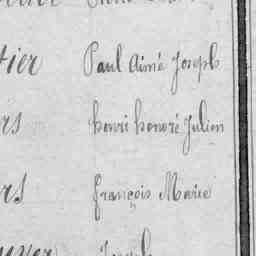 tier Paul Aimé Joseph
rs henri honoré Julien
rs françois Marie
Joseph